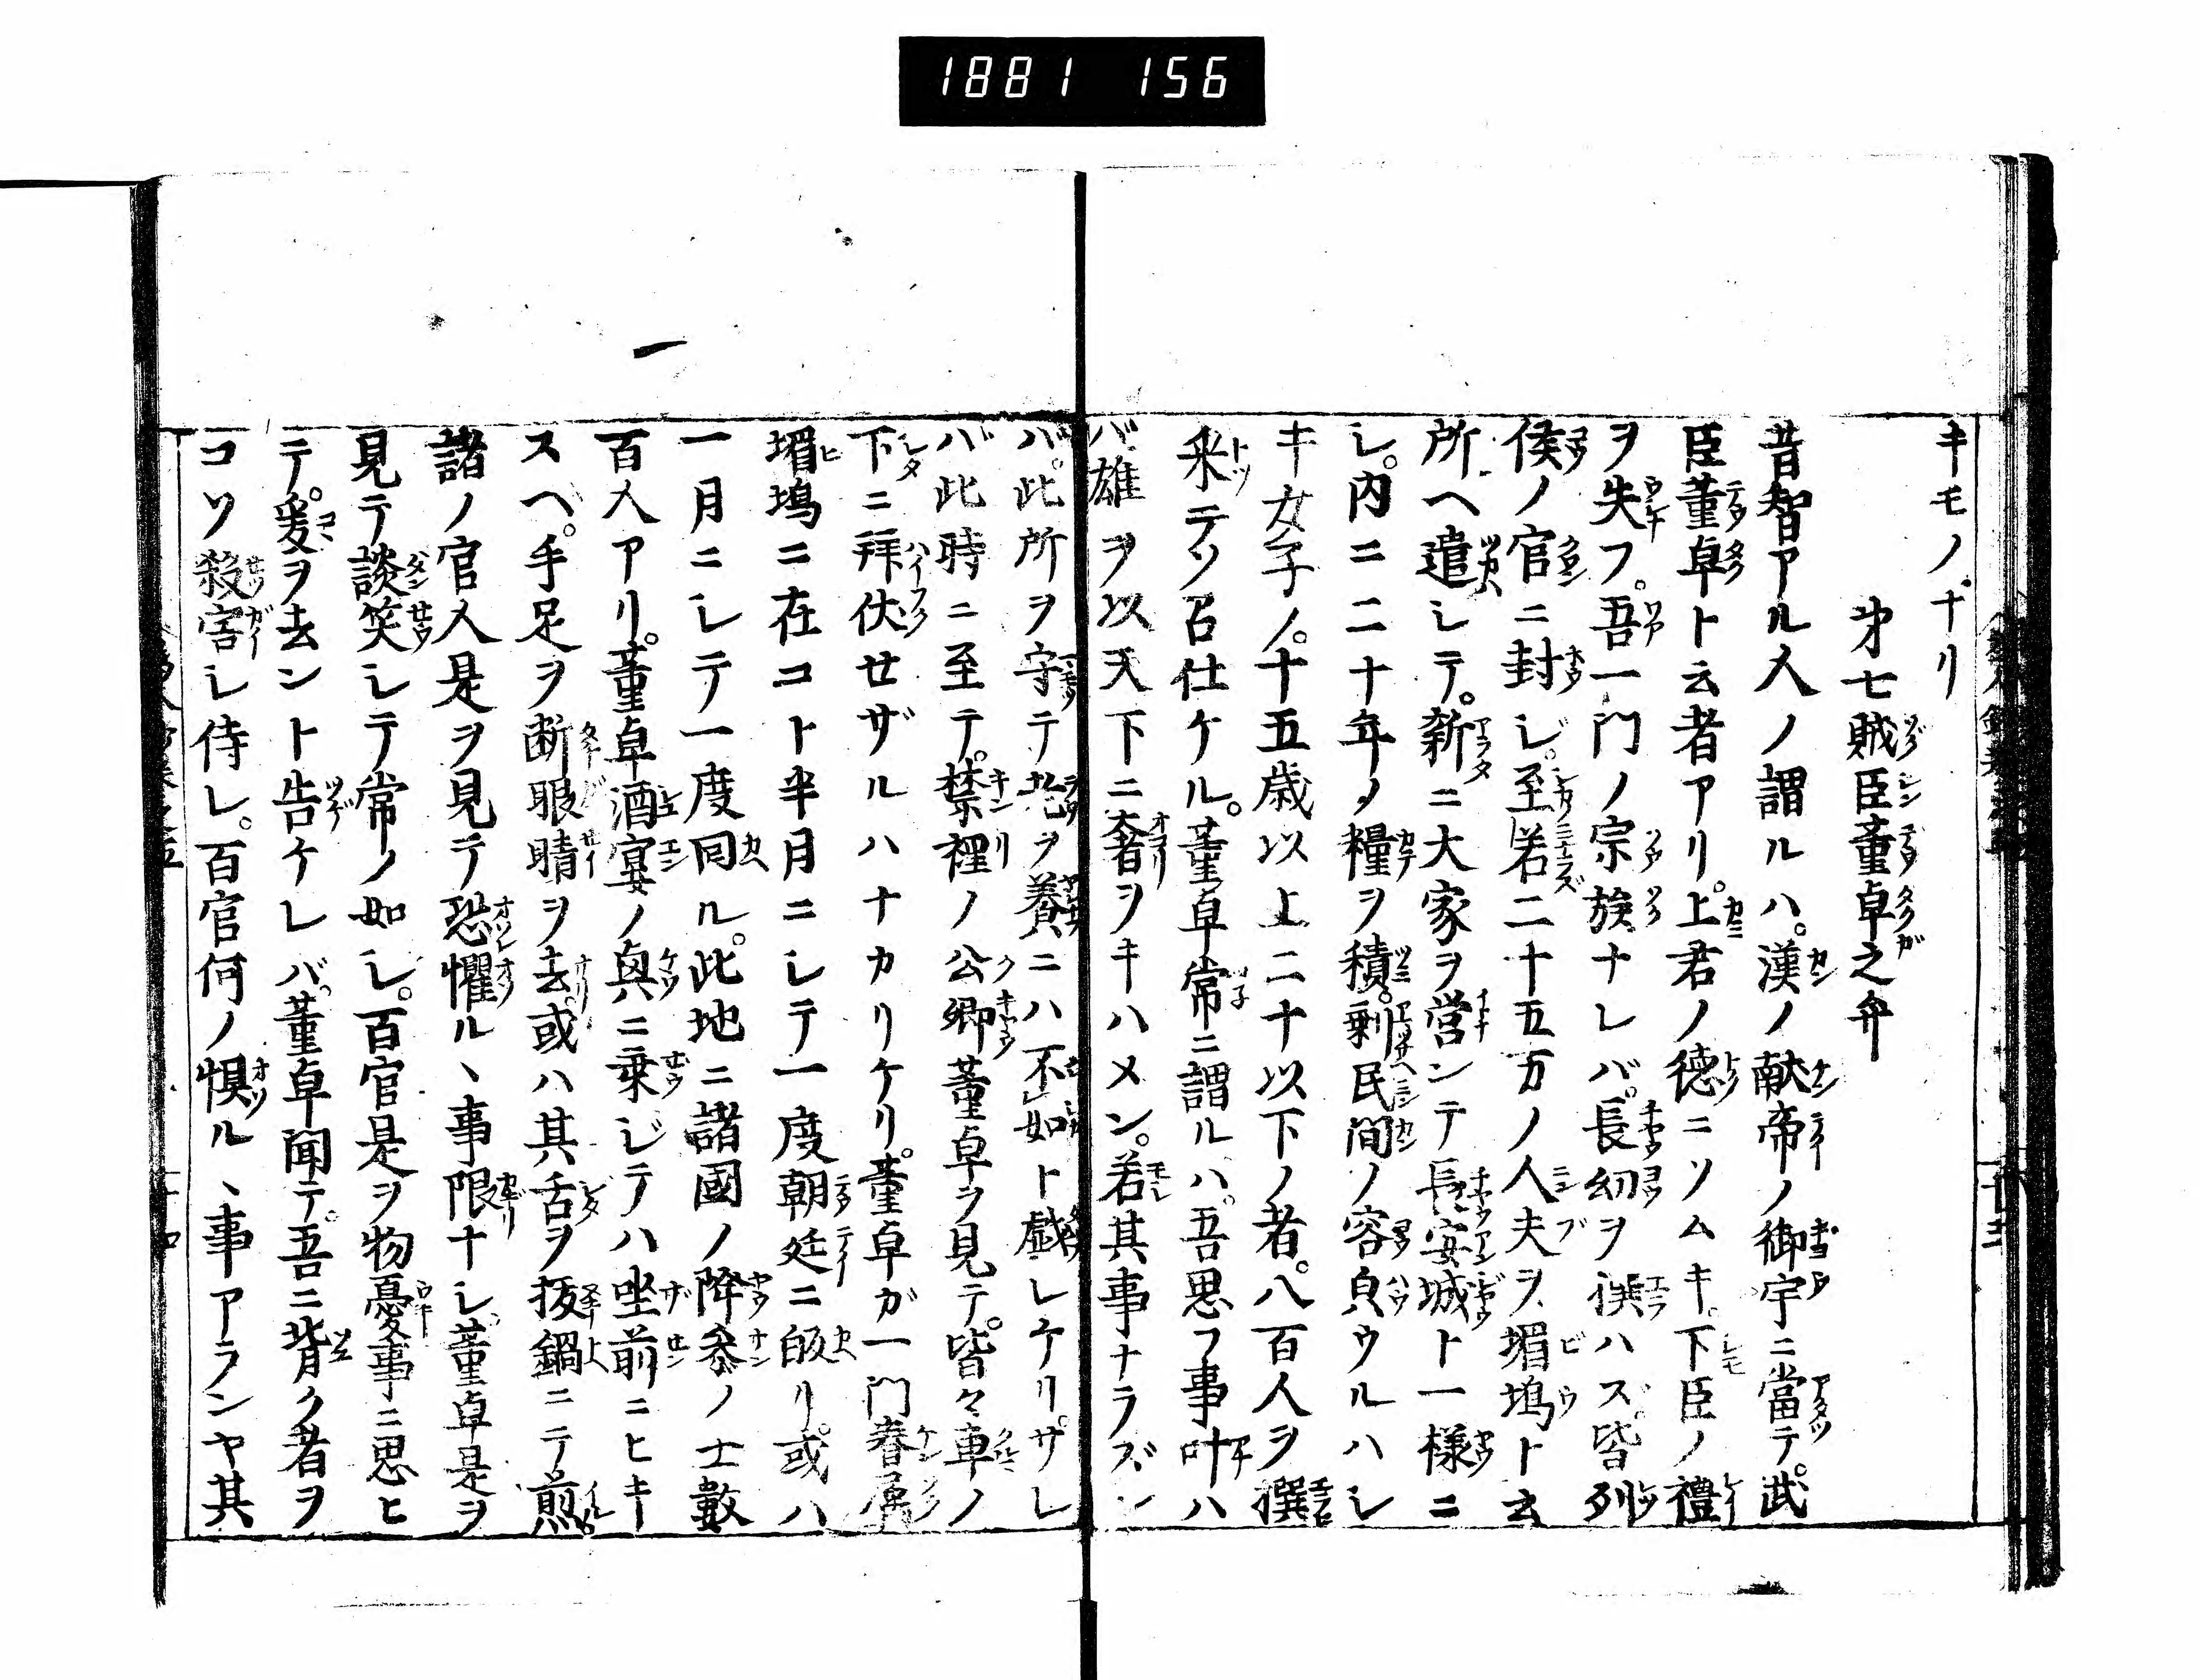 1881 156
キモノナリ
㐧七賊臣董卓之弁
昔智アル人ノ謂ルハ。漢ノ献帝ノ御宇ニ當テ。武
臣董卓ト云者アリ。上君ノ德ニソムキ。下臣ノ禮
ヲ失フ。吾一門ノ宗族ナレバ。長幼ヲ撰ハズ。皆列
侯ノ官ニ封し。至若二十五万ノ人夫ヲ、堳塢ト云
所ヘ遣しテ。新ニ大家ヲ営ンテ長安城ト一様ニ
し。内ニ二十年ノ糧ヲ積。剰民間ノ容貞ウルハシ
キ女子ノ。十五歳以上二十以下ノ者。八百人ヲ撰
来テソ召仕ケル。董卓常ニ謂ルハ。吾思フ事叶ハ
バ雄ヲ以天下ニ奢ヲキハメン。若其事ナラズン
バ。此所ヲ守テ老ヲ養ニハ不如ト戯レケリ。サレ
バ此時ニ至テ。禁裡ノ公卿董卓ヲ見テ。皆々車ノ
下ニ拜伏せザルハナカリケリ。董卓ガ一門眷属
堳塢ニ在コト半月ニしテ一度朝廷ニ皈リ。或ハ
一月ニしテ一度囘ル。此地ニ諸國ノ降参ノ士數
百人アリ。董卓酒宴ノ興ニ乗じテハ坐前ニヒキ
スヘ。手足ヲ断眼睛ヲ去。或ハ其舌ヲ拔鍋ニテ煎。
諸ノ官人是ヲ見テ恐懼ルヽ事限ナし。董卓是ヲ
見テ談笑しテ常ノ如し。百官是ヲ物憂事ニ思ヒ
テ。爰ヲ去ント告ケレバ。董卓聞テ。吾ニ背ク者ヲ
コソ殺害し侍し。百官何ノ惧ルヽ事アランヤ其